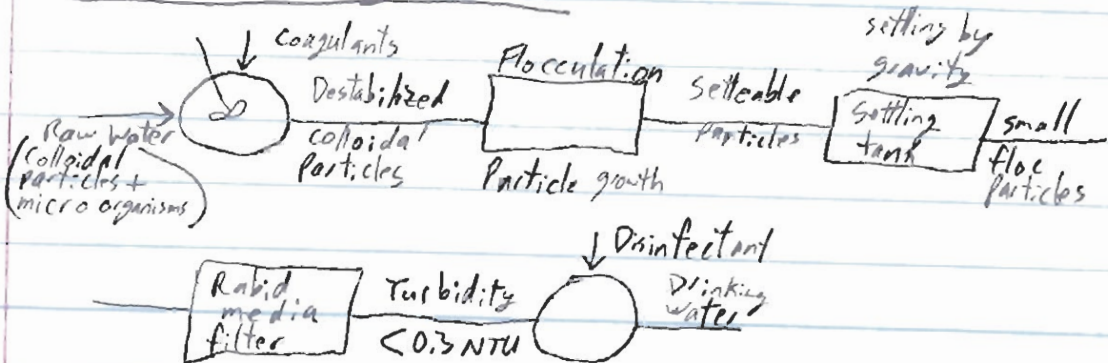 Coagulants
Raw Water
(colloidal
particles +
micro organisms)
Destabilized
colloidal
Particles
Flocculation
Particle growth
Setteable
Particles
settling by
gravity
Settling
tank
small
floc
Particles
Rabid
media
filter
Turbidity
<0.3 NTU
Disinfectant
Drinking
Water